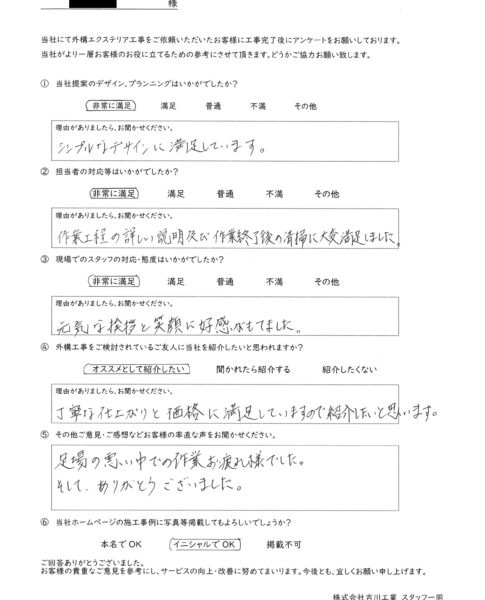 様
当社にて外構エクステリア工事をご依頼いただいたお客様に工事完了後にアンケートをお願いしております。
当社がより一層お客様のお役に立てるための参考にさせて頂きます。どうかご協力お願い致します。
① 当社提案のデザイン、プランニングはいかがでしたか?
非常に満足 満足 普通 不満 その他
理由がありましたら、お聞かせください。
シンプルなデザインに満足しています。
② 担当者の対応等はいかがでしたか?
非常に満足 満足 普通 不満 その他
理由がありましたら、お聞かせください。
作業工程の詳しい説明及び作業終了後の清掃に大変満足しました。
③ 現場でのスタッフの対応・態度はいかがでしたか?
非常に満足 満足 普通 不満 その他
理由がありましたら、お聞かせください。
元気な挨拶と笑顔に好感がもてました。
④ 外構工事をご検討されているご友人に当社を紹介したいと思われますか?
オススメとして紹介したい 聞かれたら紹介する 紹介したくない
理由がありましたら、お聞かせください。
丁寧な仕上がりと価格に満足していますので紹介したいと思います。
⑤ その他ご意見・ご感想などお客様の率直な声をお聞かせください。
足場の悪い中での作業お疲れ様でした。
そして、ありがとうございました。
⑥ 当社ホームページの施工事例に写真等掲載してもよろしいでしょうか?
本名でOK イニシャルでOK 掲載不可
ご回答ありがとうございました。
お客様の貴重なご意見を参考にし、サービスの向上・改善に努めてまいります。今後とも、宜しくお願い申し上げます。
株式会社吉川工業 スタッフ一同